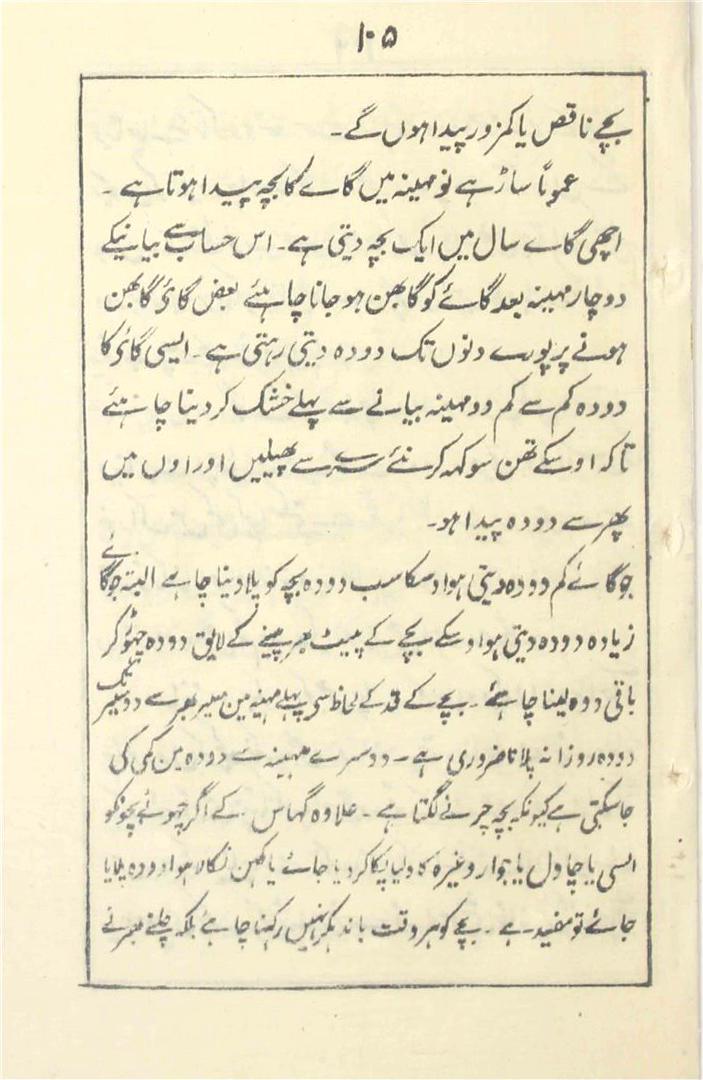 ۱۰۵
بچے ناقص یا کمزور پیدا ہوں گے۔
عموماً ساڑہے نو مہینہ میں گاے کا بچہ پیدا ہوتا ہے۔
اچھی گاے سال میں ایک بچہ دیتی ہے۔ اس حساب سے بیانیکے
دو چار مہینہ بعد گائے کو گابھن ہو جانا چاہئے بعض گائ گابھن
ہونے پر پورے دنوں تک دودہ دیتی رہتی ہے۔ ایسی گائ کا
دودہ کم سے کم دو مہینہ بیانے سے پہلے خشک کر دینا چاہئے
تاکہ اوسکے تھن سوکہہ کر نئے سرے سے پھیلیں اور اون میں
پھر سے دودہ پیدا ہو۔
جو گائے کم دودہ دیتی ہو اوسکا سب دودہ بچہ کو پلا دینا چاہے البتہ جو گائے
زیادہ دودہ دیتی ہو اوسکے بچے کے پیٹ بھر پینے کے لایق دودہ چہوڑ کر
باقی دوہ لینا چاہئے۔ بچے کے قد کے لحاظ سی پہلے مہینہ مین سیر بھر سے دو سیر تک
دودہ روزانہ پلانا ضروری ہے۔ دوسرے مہینہ سے دودہ مین کمی کی
جا سکتی ہے کیونکہ بچہ چرنے لگتا ہے۔ علاوہ گہاس کے اگر چہوٹے بچونکو
السی یا چاول یا جوار وغیرہ کا دلیا پکا کر دیا جائے یا مکہن نکالا ہوا دودہ پلایا
جائے تو مفید ہے۔ بچے کو ہر وقت باندہکر نہیں رکہنا چاہے بلکہ چلنے پھرنے